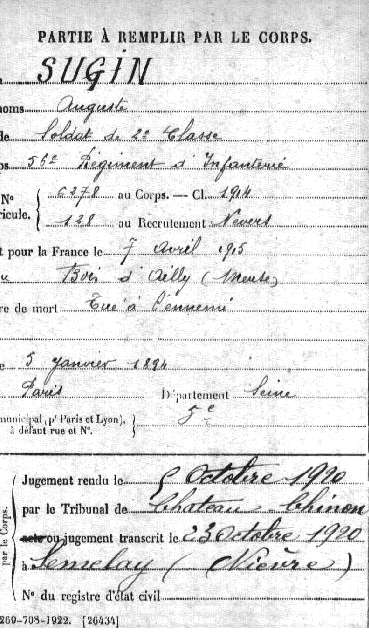 PARTIE À REMPLIR PAR LE CORPS.
SUGIN
noms Auguste
de Soldat de 2e Classe
ps 56e Régiment d'Infanterie
N° 6278 au Corps. — Cl. 1914
ricule. 128 au Recrutement Nevers
t pour la France le 7 Avril 1915
Bois d'Ailly (Meuse)
re de mort Tué à l'ennemi
e 5 janvier 1894
Paris Département Seine
municipal (pr Paris et Lyon), 5e
à défaut rue et N°.
Jugement rendu le 5 Octobre 1920
par le Tribunal de Chateau Chinon
acte ou jugement transcrit le 23 Octobre 1920
à Semelay (Nièvre)
N° du registre d'état civil
par le Corps.
269-708-1922. [26434]